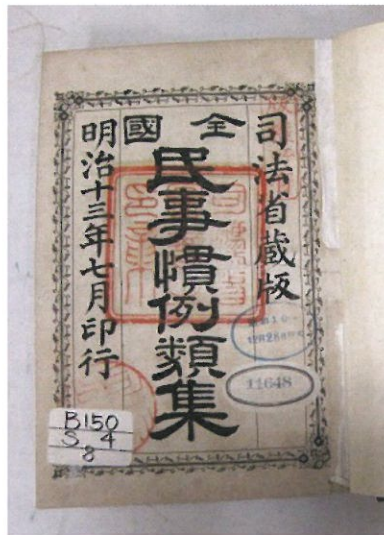 司法省蔵版
全國
民事慣例類集
明治十三年七月印行
11648
B150
S 4
8